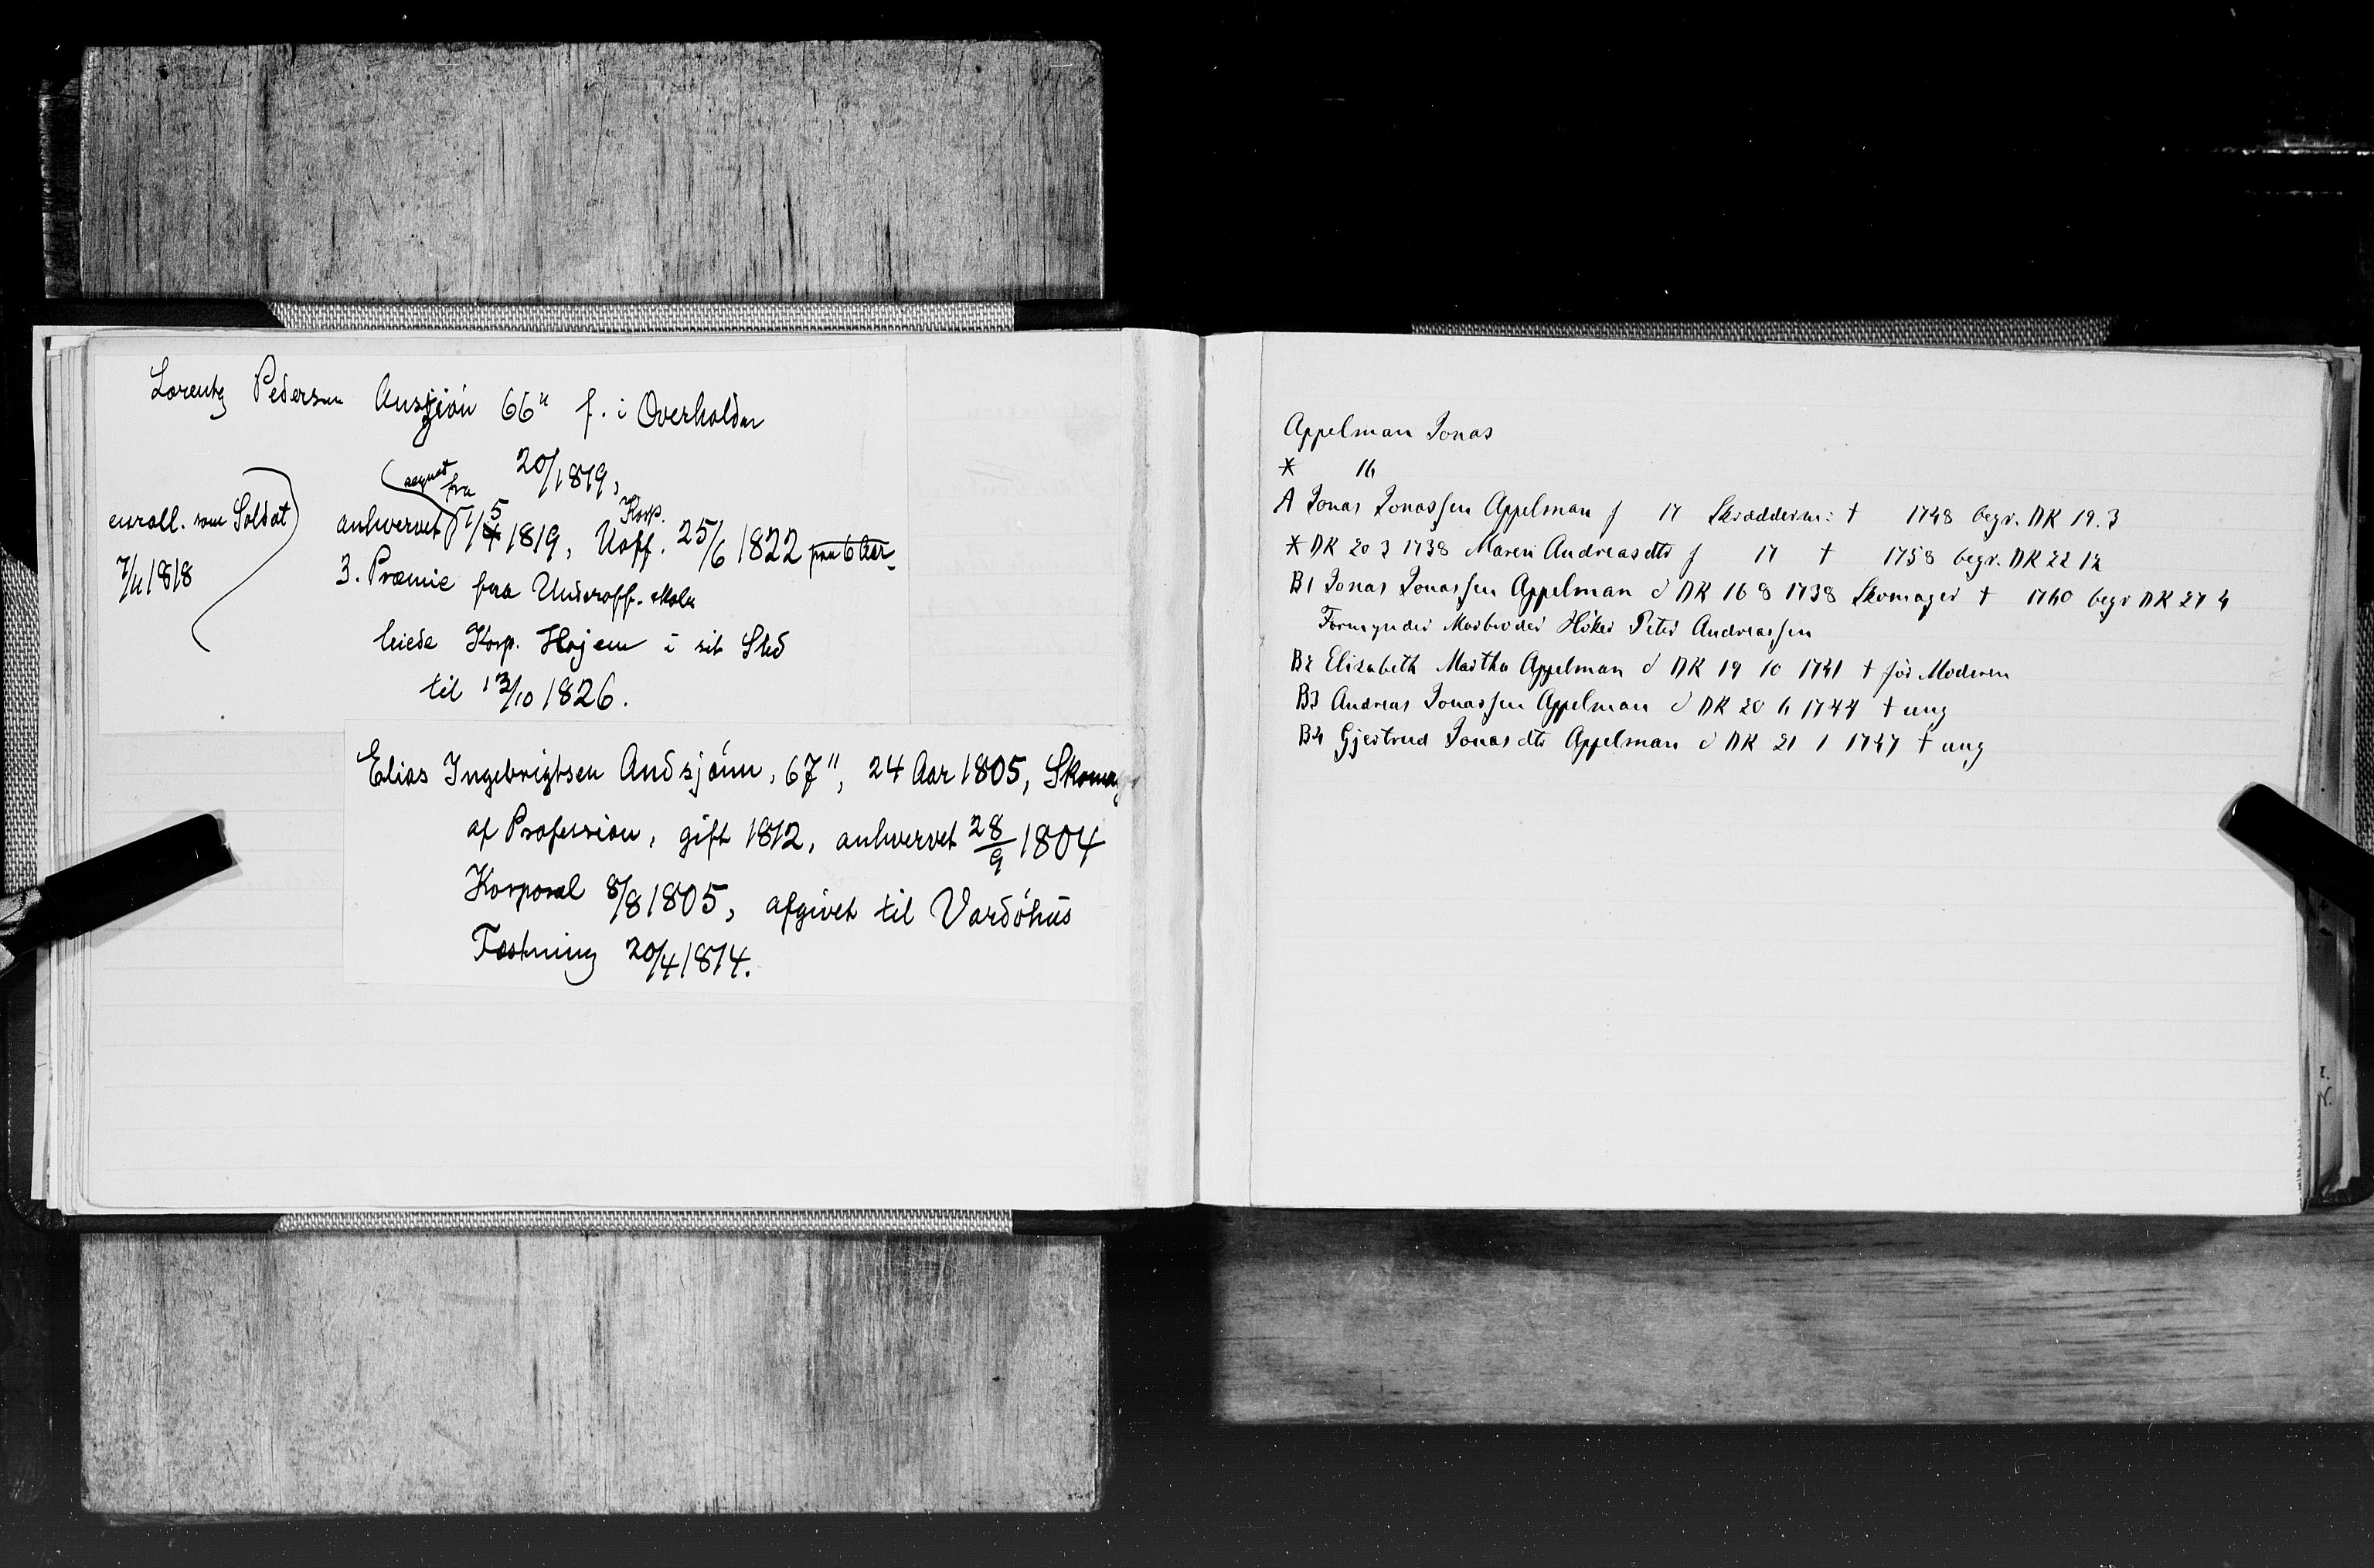 Lorentz Pedersen Ausjön 66" f. i Overhalden
regnet fra 20/1 1819,
enroll. som Soldat
7/11 1818
anhvervet 1/5 1819, Korp. Uoff. 25/6 1822 paa 6 Aar
3. Præmie fra Underoff. skolen
leiede Korp. Hojem i sit Sted
til 13/10 1826.
Elias Ingebrigtsen Andsjönn, 67", 24 Aar 1805, Skomag
af Profession, gift 1812, anhvervet 28/9 1804
Korporal 8/8 1805, afgivet til Vardöhus
Fæstning 20/4 1814.
Appelman Jonas
* 16
A Jonas Jonassen Appelman f 17 Skrædderm: † 1748 begr. DK 19.3
* DK 20 3 1738 Maren Andreasdtr f 17 † 1758 begr. DK 22 12
B1 Jonas Jonassen Appelman d DK 16 8 1738 Skomager † 1760 begr DK 27 4
Formynder Morbroder Höker Peter Andreassen
B2 Elisabeth Martha Appelman d DK 19 10 1741 † för Moderen
B3 Andreas Jonassen Appelman d DK 20 6 1744 † ung
B4 Gjertrud Jonasdtr Appelman d DK 21 1 1747 † ung